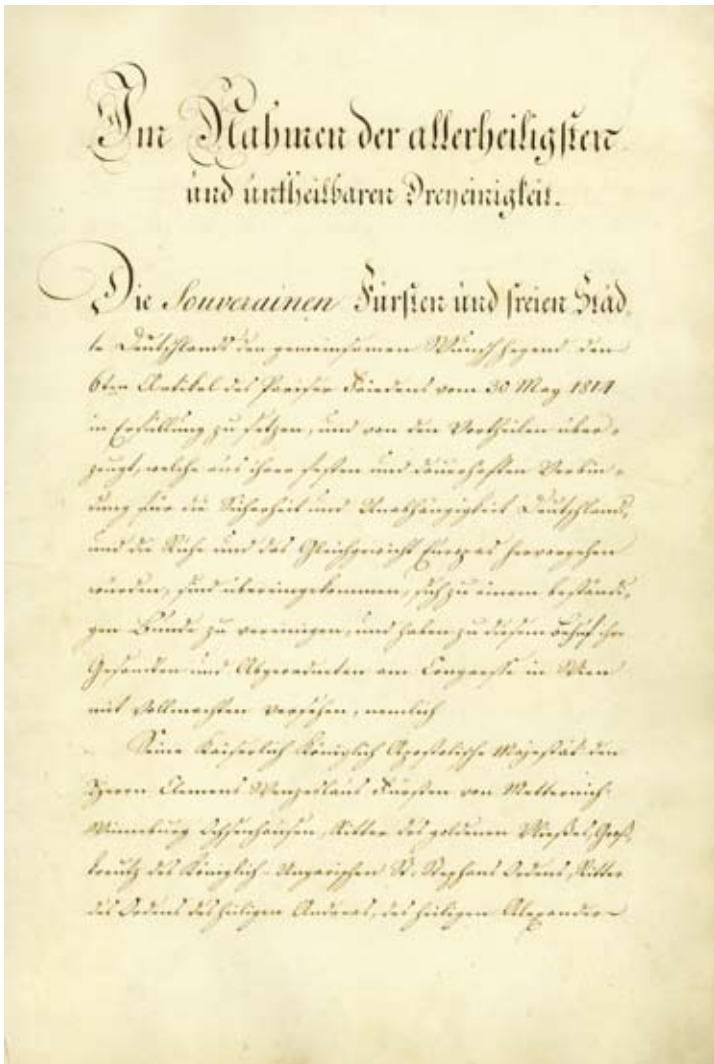 Im Nahmen der allerheiligsten
und untheilbaren Dreyeinigkeit.
Die Souverainen Fürsten und freien Städ,
te Deutschlands den gemeinsamen Wunsch hegend den
6ten Artikel des Pariser Friedens vom 30 May 1814
in Erfüllung zu setzen, und von den Vortheilen über,
zeugt, welche aus ihrer festen und dauerhaften Verbin,
dung für die Sicherheit und Unabhängigkeit Deutschlands,
und die Ruhe und das Gleichgewicht Europas hervorgehen
würden, sind übereingekommen, sich zu einem beständi,
gen Bunde zu vereinigen, und haben zu diesem Behuf ihre
Gesandten und Abgeordneten am Congresse in Wien
mit Vollmachten versehen, nemlich
Seine Kaiserlich Königlich Apostolische Majestät den
Herrn Clemens Wenzeslaus Fürsten von Metternich-
Winneburg Ochsenhausen, Ritter des goldenen Vließes, Groß,
kreutz des Königlich-Ungarischen St. Stephans Ordens, Ritter
des Ordens des heiligen Andreas, des heiligen Alexander